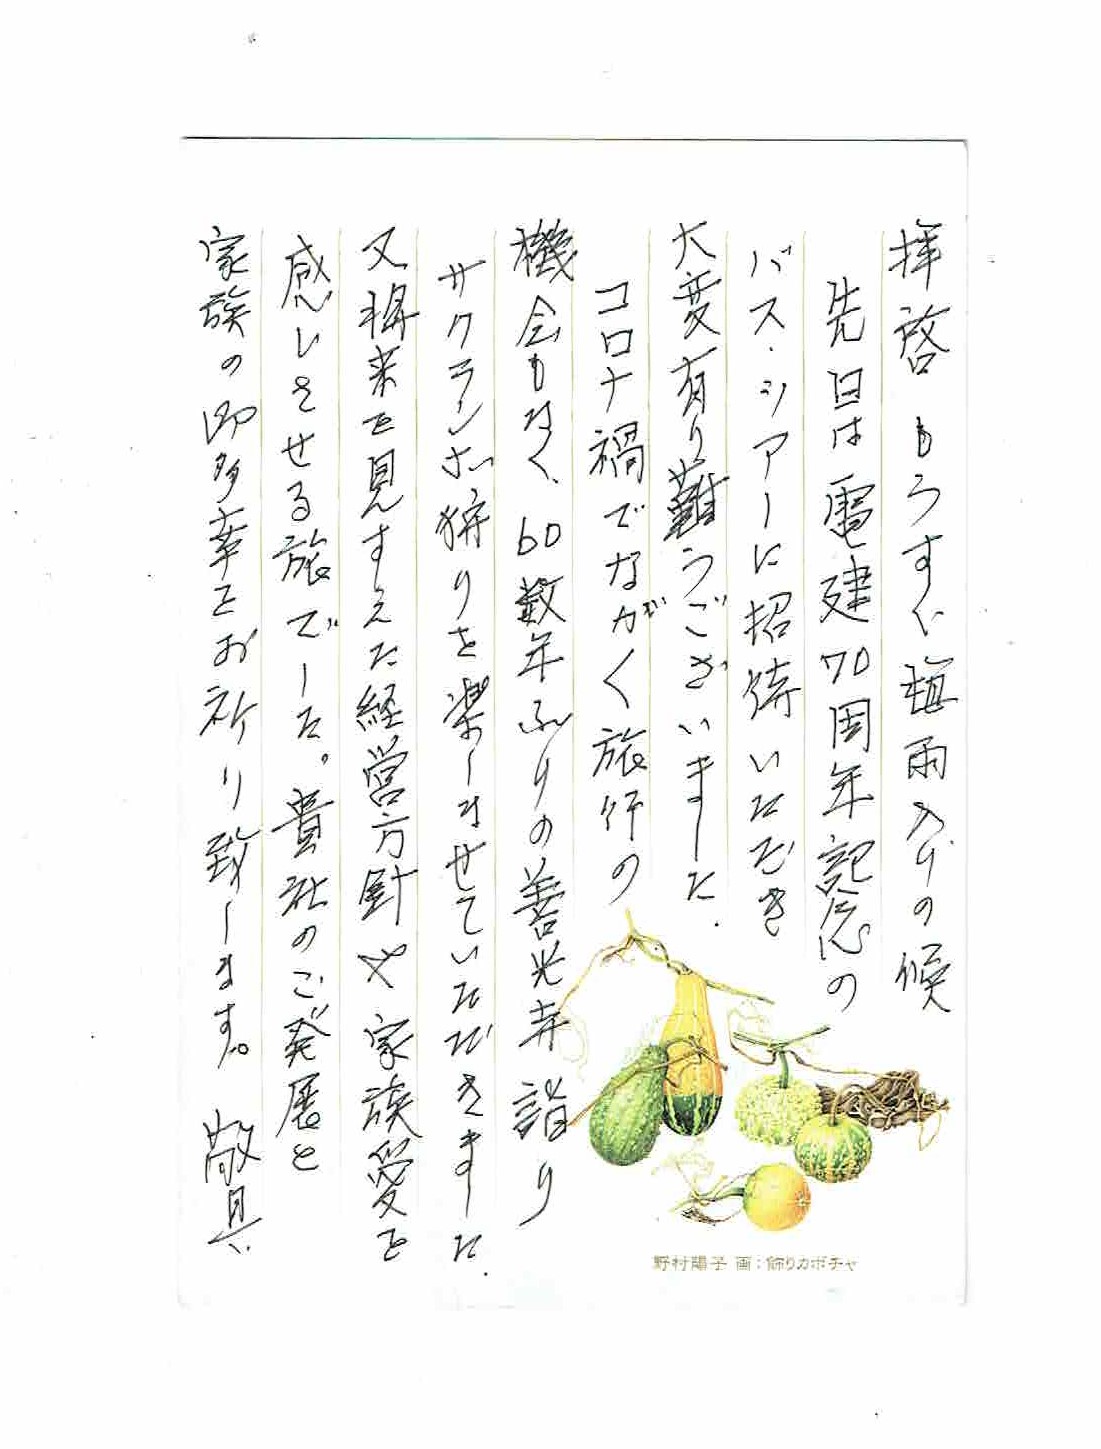 拝啓 もうすぐ梅雨入りの候
先日は電建70周年記念の
バス・ツアーに招待いただき
大変有り難うございました.
コロナ禍でなが〻く旅行の
機会もなく、60数年ふりの善光寺詣り
サクランボ狩りを楽しませていただきました.
又、将来を見すえた経営方針や家族愛を
感じさせる旅でした。貴社のご発展と
家族の御多幸をお祈り致します。 敬具
野村陽子 画：飾りカボチャ